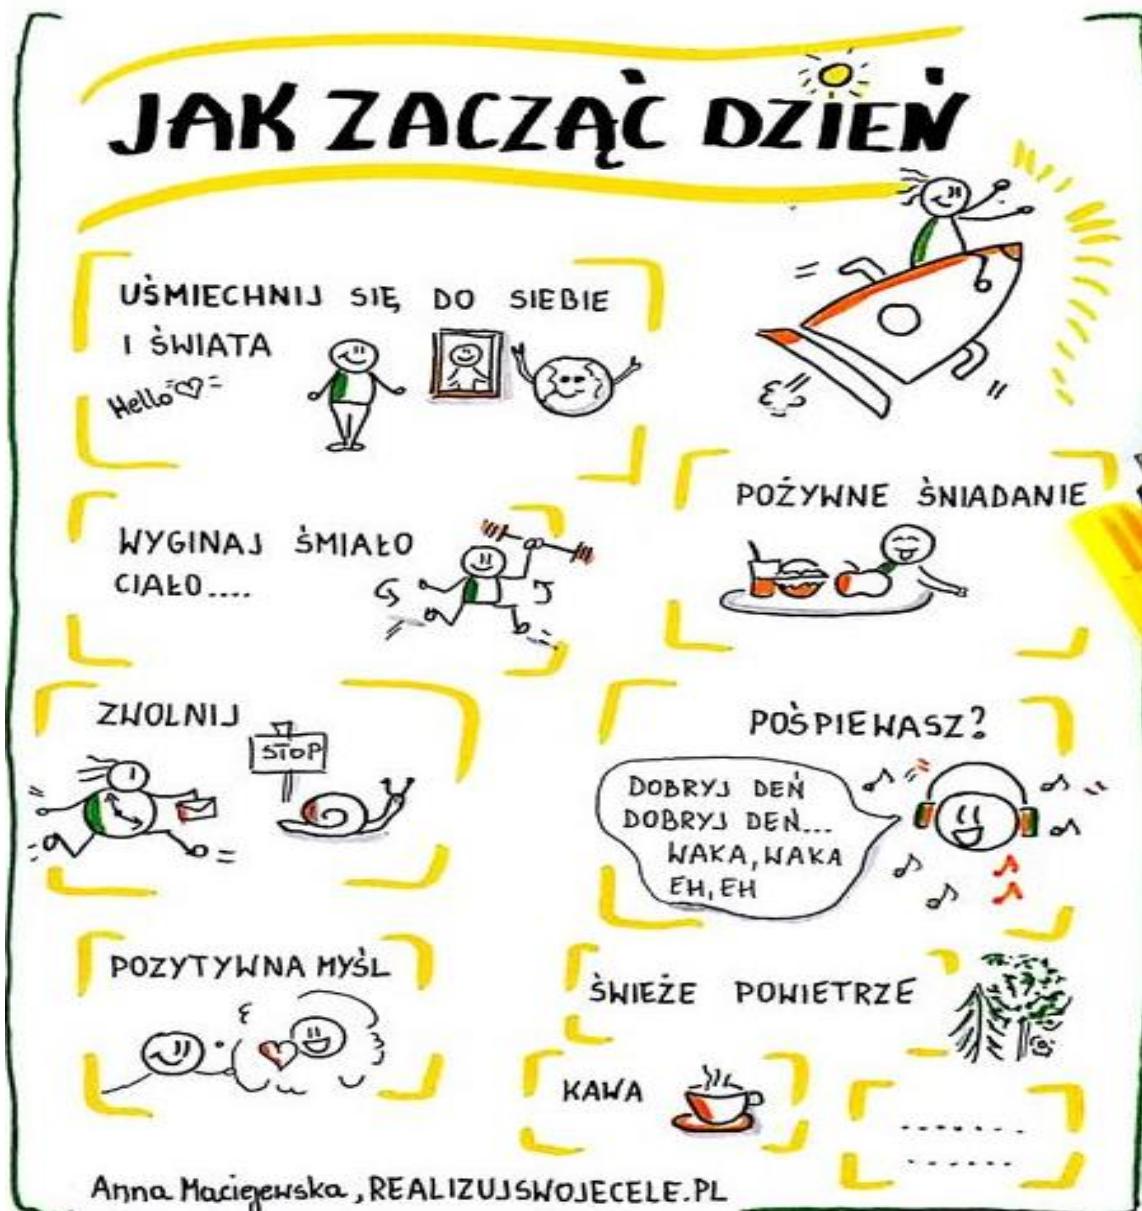 JAK ZACZĄĆ DZIEŃ
UŚMIECHNIJ SIĘ DO SIEBIE
I ŚWIATA
Hello
WYGINAJ ŚMIAŁO
CIAŁO....
POŻYWNE ŚNIADANIE
ZWOLNIJ
STOP
POŚPIEWASZ?
DOBRYJ DEŃ
DOBRYJ DEŃ...
WAKA, WAKA
EH, EH
POZYTYWNA MYŚL
ŚWIEŻE POWIETRZE
KAWA
.......
......
Anna Maciejewska, REALIZUJSWOJECELE.PL